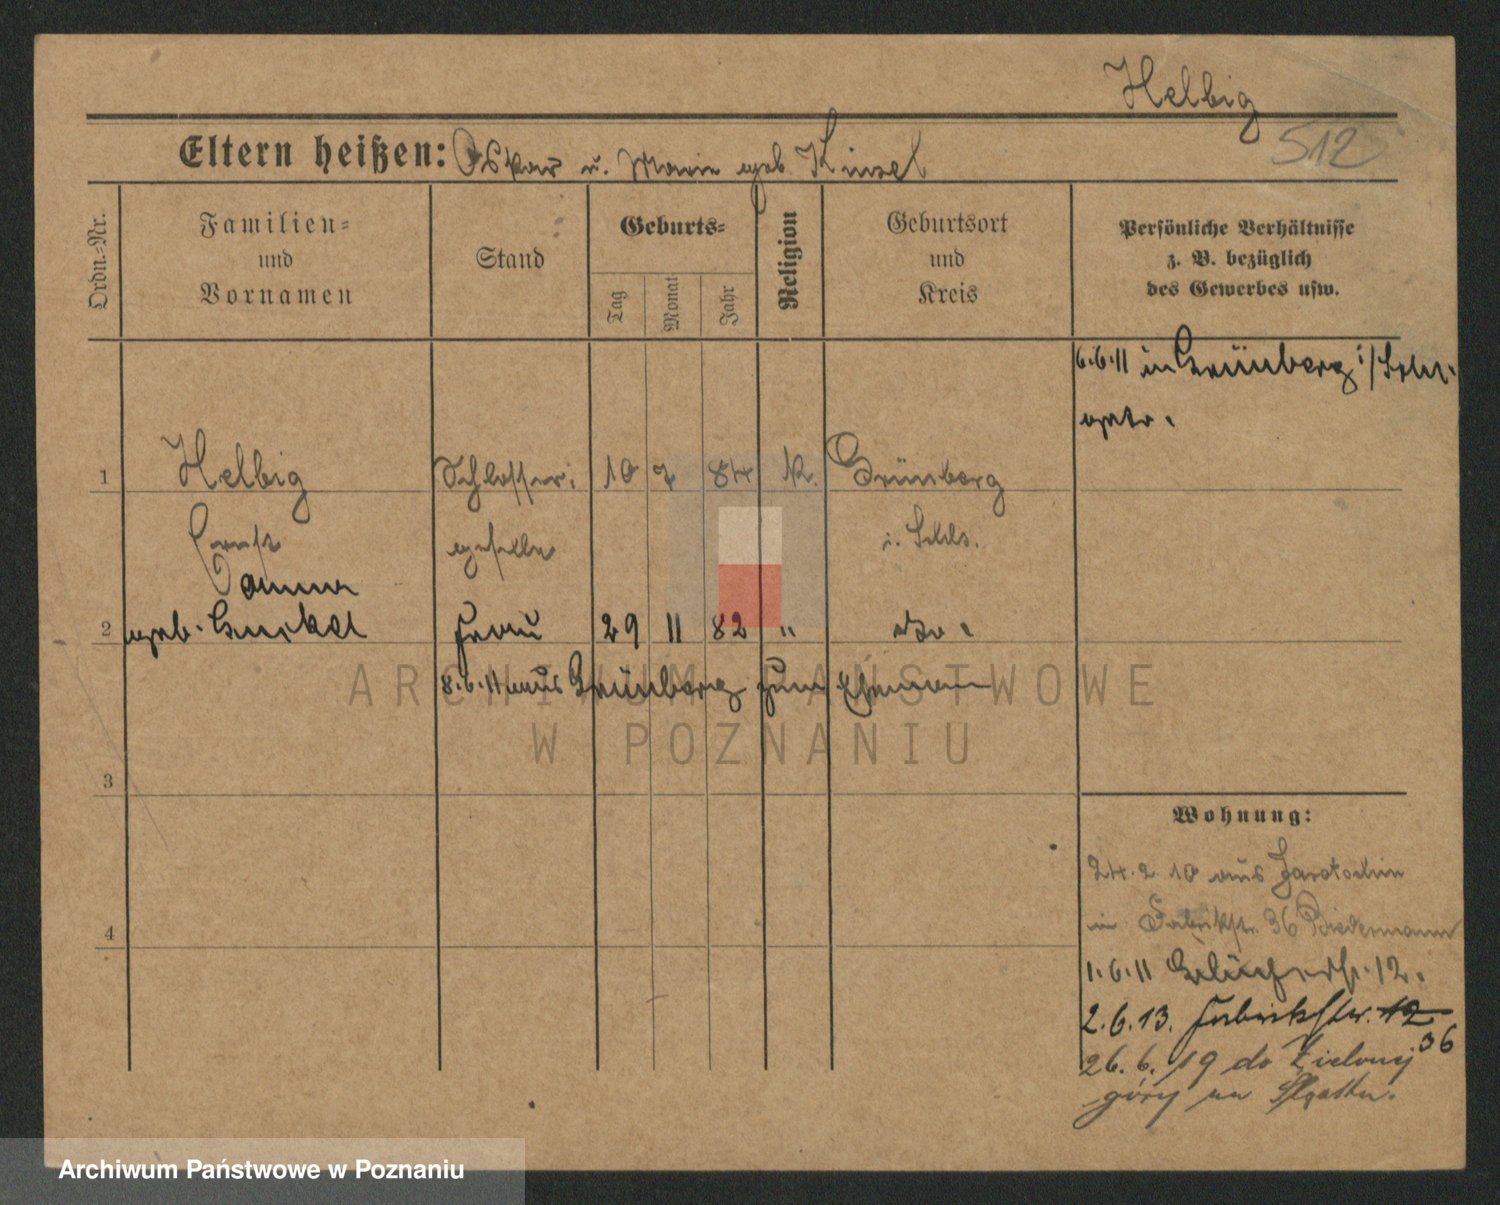 Helbig
512
Eltern heißen: Oskar u. Marie geb Kinzel
Ordn.-Nr.
Familien-
und
Vornamen
Stand
Geburts-
Tag
Monat
Jahr
Religion
Geburtsort
und
Kreis
Persönliche Verhältnisse
z. B. bezüglich
des Gewerbes usw.
6.6.11 in Grünberg i/Schl.
getr.
1 Helbig Schlosser- 10 7 84 K. Grünberg
Ernst geselle i. Schls.
Emma
2 geb. Frau 29 11 82 " do.
8.6.11 aus Grünberg zum Ehemann
3
4
Wohnung:
24.2.10 aus Jarotschin
in Fabrikstr. 36 Biedermann
1.6.11 12.
2.6.13. Fabrikstr. 12
36
26.6.19 do Zielonej
góry na
ARCHIWUM PAŃSTWOWE
W POZNANIU
Archiwum Państwowe w Poznaniu